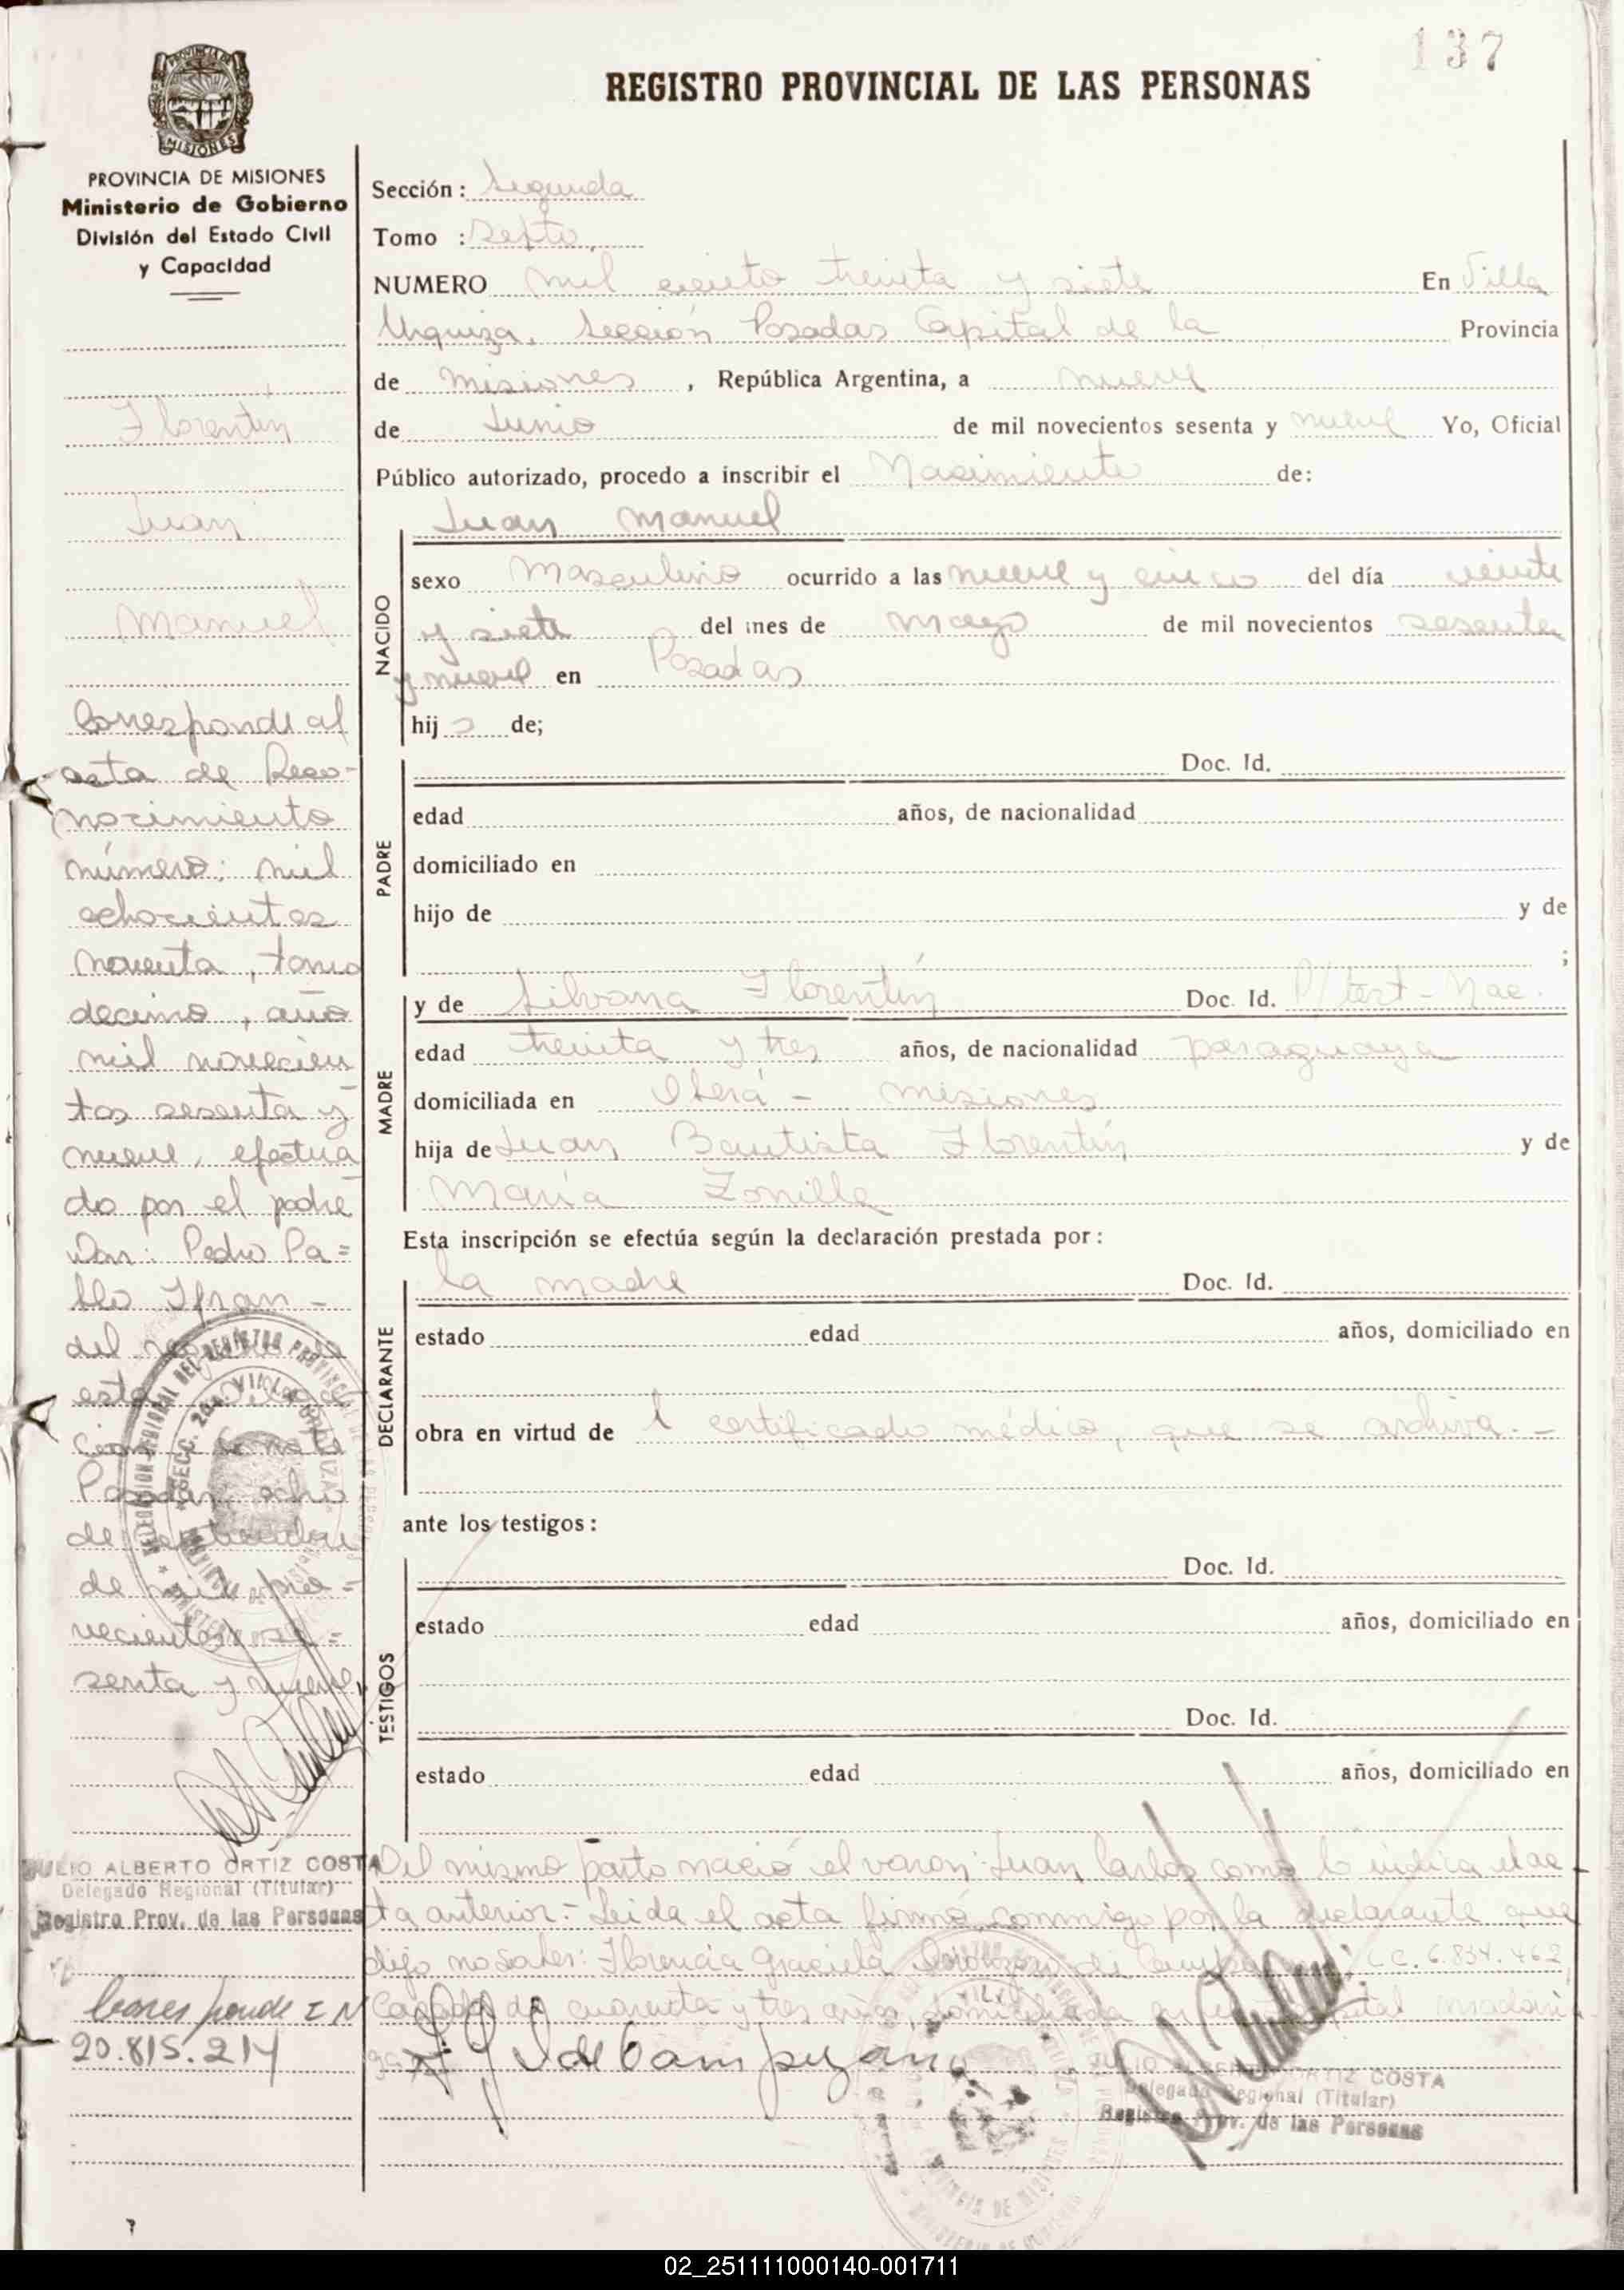 137
REGISTRO PROVINCIAL DE LAS PERSONAS
MISIONES
PROVINCIA DE MISIONES
Ministerio de Gobierno
División del Estado Civil
y Capacidad
Florentín
Juan
Manuel
Corresponde al
acta de Reco-
nocimiento
número: mil
ochocientos
noventa, tomo
decimo, año
mil novecien
tos sesenta y
nueve, efectua
do por el padre
Don: Pedro Pa=
blo Ifran -
del
esta
Posadas ocho
de septiembre
de mil no=
vecientos se=
senta y nueve
JULIO ALBERTO ORTIZ COSTA
Delegado Regional (Titular)
Registro Prov. de las Personas
Corresponde I N
20.815.214
Sección: Segunda
Tomo :
NUMERO mil ciento treinta y siete En Villa
Urquiza, Sección Posadas Capital de la Provincia
de Misiones, República Argentina, a nueve
de Junio de mil novecientos sesenta y nueve Yo, Oficial
Público autorizado, procedo a inscribir el Nacimiento de:
Juan Manuel
NACIDO
sexo Masculino ocurrido a las nueve y cinco del día veinte
y siete del mes de mayo de mil novecientos sesenta
y nueve en Posadas
hijo de;
PADRE
Doc. Id.
edad años, de nacionalidad
domiciliado en
hijo de y de
;
MADRE
y de Silvana Florentín Doc. Id. P/ test - Nac.
edad treinta y tres años, de nacionalidad paraguaya
domiciliada en Oberá - Misiones
hija de Juan Bautista Florentín y de
María Zonilla
Esta inscripción se efectúa según la declaración prestada por:
DECLARANTE
la madre Doc. Id.
estado edad años, domiciliado en
obra en virtud de l certificado médico, que se archiva.-
ante los testigos:
TESTIGOS
Doc. Id.
estado edad años, domiciliado en
Doc. Id.
estado edad años, domiciliado en
Del mismo parto nació el varon: Juan Carlos como lo indica el ac
ta anterior.- Leida el acta firmó conmigo por la declarante que
dijo no saber: Florencia Graciela de C.C. 6.834.462
Casada de cuarenta y tres años, domiciliada en
de Campuzano
JULIO ALBERTO ORTIZ COSTA
Delegado Regional (Titular)
Registro Prov. de las Personas
02_251111000140-001711